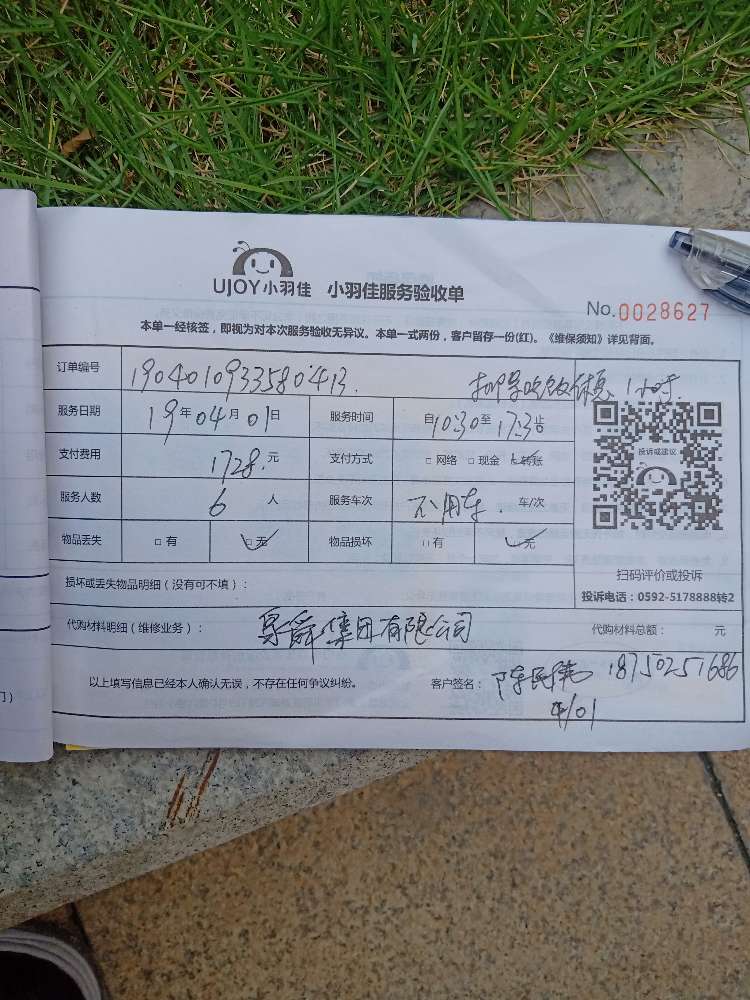 UJOY小羽佳 小羽佳服务验收单
No.0028627
本单一经核签，即视为对本次服务验收无异议。本单一式两份，客户留存一份(红)。《维保须知》详见背面。
订单编号 1904010933580413. 休息1小时.
服务日期 19年04月01日 服务时间 自10:30至17:30止
支付费用 1728.元 支付方式 □网络 □现金 □转账
服务人数 6 人 服务车次 不用车. 车/次
物品丢失 □有 □无 物品损坏 □有 □无
投诉或建议
扫码评价或投诉
投诉电话：0592-5178888转2
损坏或丢失物品明细（没有可不填）：
代购材料明细（维修业务）： 集团有限公司 代购材料总额： 元
以上填写信息已经本人确认无误，不存在任何争议纠纷。 客户签名： 陈 18750251686
4/01
门）